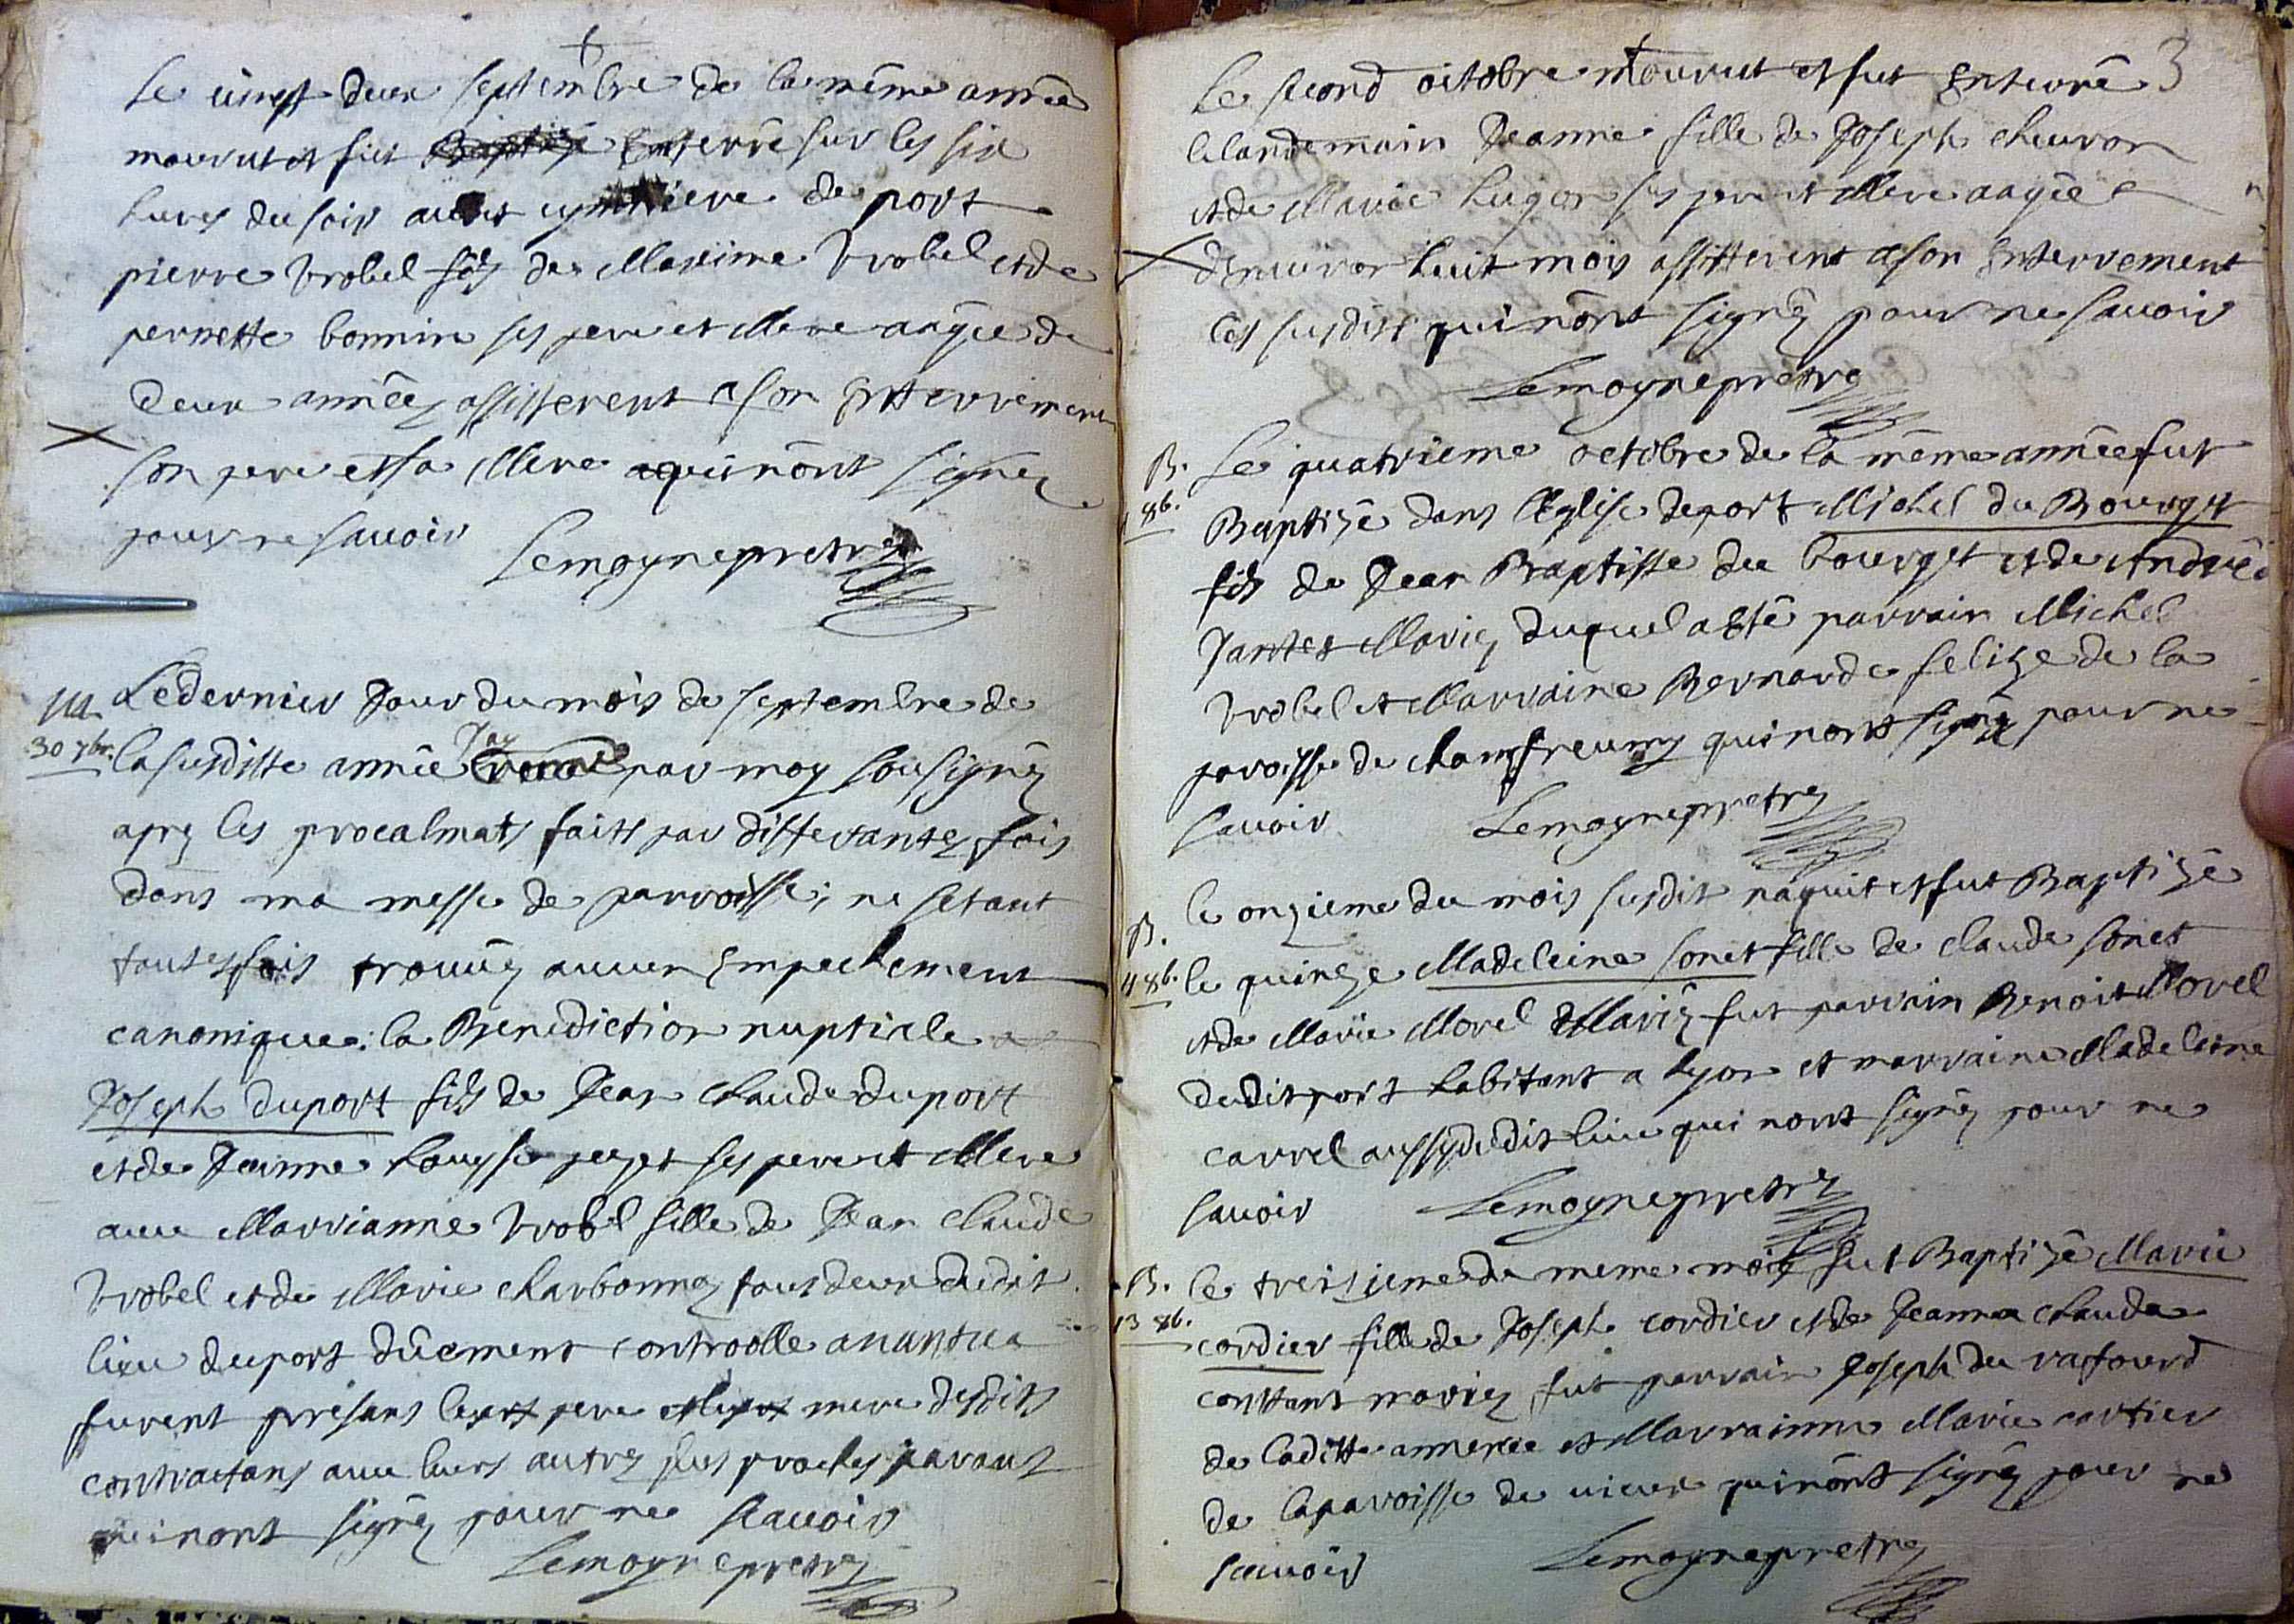 +
Le vingt deux septembre de la même année
mourut et fut enterré sur les six
heures du soir au cymetiere de port
pierre Vrobel fils de Maxime Vrobel et de
pernette bonnin ses pere et Mere aagée de
deux années assisterent a son Entterrement
son pere et sa Mere qui nônt signez
pour ne savoir Lemoyne pretre
M
30 7br.
Le dernier Jour du mois de septembre de
la susditte année Jay par moy sousigné
apres les procalmats faits par differantes fois
dans ma messe de parroisse; ne setant
toutesfois trouuéz aucun Empechement
canonique: la Benediction nuptiale a
Joseph duport fils de Jean Claude duport
et de Jeanne ses pere et Mere
auec Marrianne Vrobel fille de Jean Claude
Vrobel et de Marie charbonnez tous deux dudit
lieu deport dûement controolle a nantua
furent présans leurs pere et leurs mere desdits
contractans auec leurs autres plus proches parants
qui nont signéz pour ne scauoir
Lemoyne pretre
3
+
Le second octobre mourut et fut Enterré
le landemain Jeanne fille de Joseph cheuron
et de Marie hugon ses pere et Mere aagée
d'Enuiron huit mois assisterent a son Enterrement
les susdits qui nônt signéz pour ne sauoir
Lemoyne pretre
B.
4 8b.
Le quatrieme octobre de la même année fut
Baptizé dans l'Eglise de port Michel du Bourget
fils de Jean Baptiste du bourget et de Andrée
Jantet Mariez duquel a Esté parrain Michel
Vrobel et Marraine Bernarde felize de la
paroisse de champfreumy qui nont signéz pour ne
sauoir Lemoyne pretre
B.
11 8b.
le onzieme du mois susdit naquit et fut Baptizé
le quinze Madeleine sonet fille de claude sonet
et de Marie Morel Mariéz fut parrain Benoit Morel
dudit port habitant a lyon et marraine Madeleine
carrel aussy dudit lieu qui nont signéz pour ne
sauoir Lemoyne pretre
B.
13 8b.
le treisieme du meme mois fut Baptizé Marie
cordier fille de Joseph cordier et de Jeanne claude
constant mariez fut parrain Joseph du raffourd
de laditte annexe et Marrainne Marie cartier
de la paroisse de uieux qui nônt signéz pour ne
scauoir Lemoyne pretre